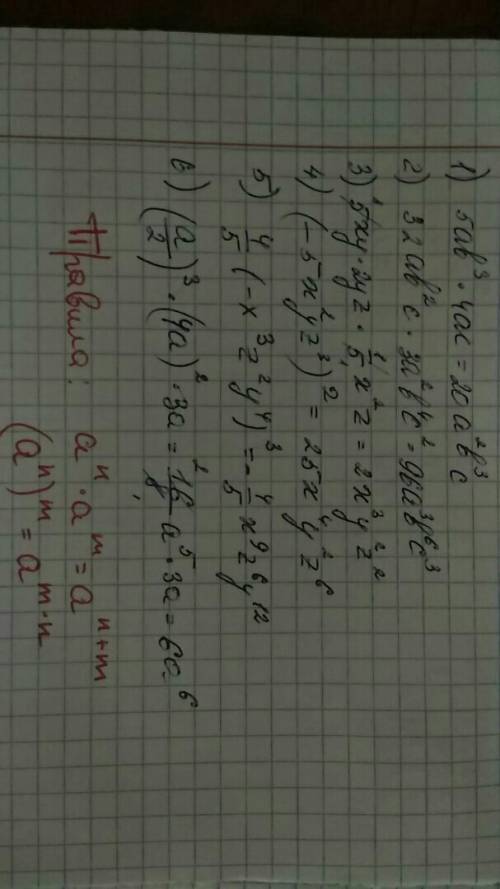 1) 5ab³ · 4ac = 20a²b³c
2) 32ab²c · 3a²b⁴c² = 96a³b⁶c³
3) 5xy · 2yz · 1/5 x²z = 2x³y²z²
4) (-5x²yz³)² = 25x⁴y²z⁶
5) 4/5 (-x³z²y⁴)³ = -4/5 x⁹z⁶y¹²
6) (a/2)³ · (4a)² · 3a = 16/8 a⁵ · 3a = 6a⁶
Правила: aⁿ · aᵐ = aⁿ⁺ᵐ
(aⁿ)ᵐ = aᵐ·ⁿ